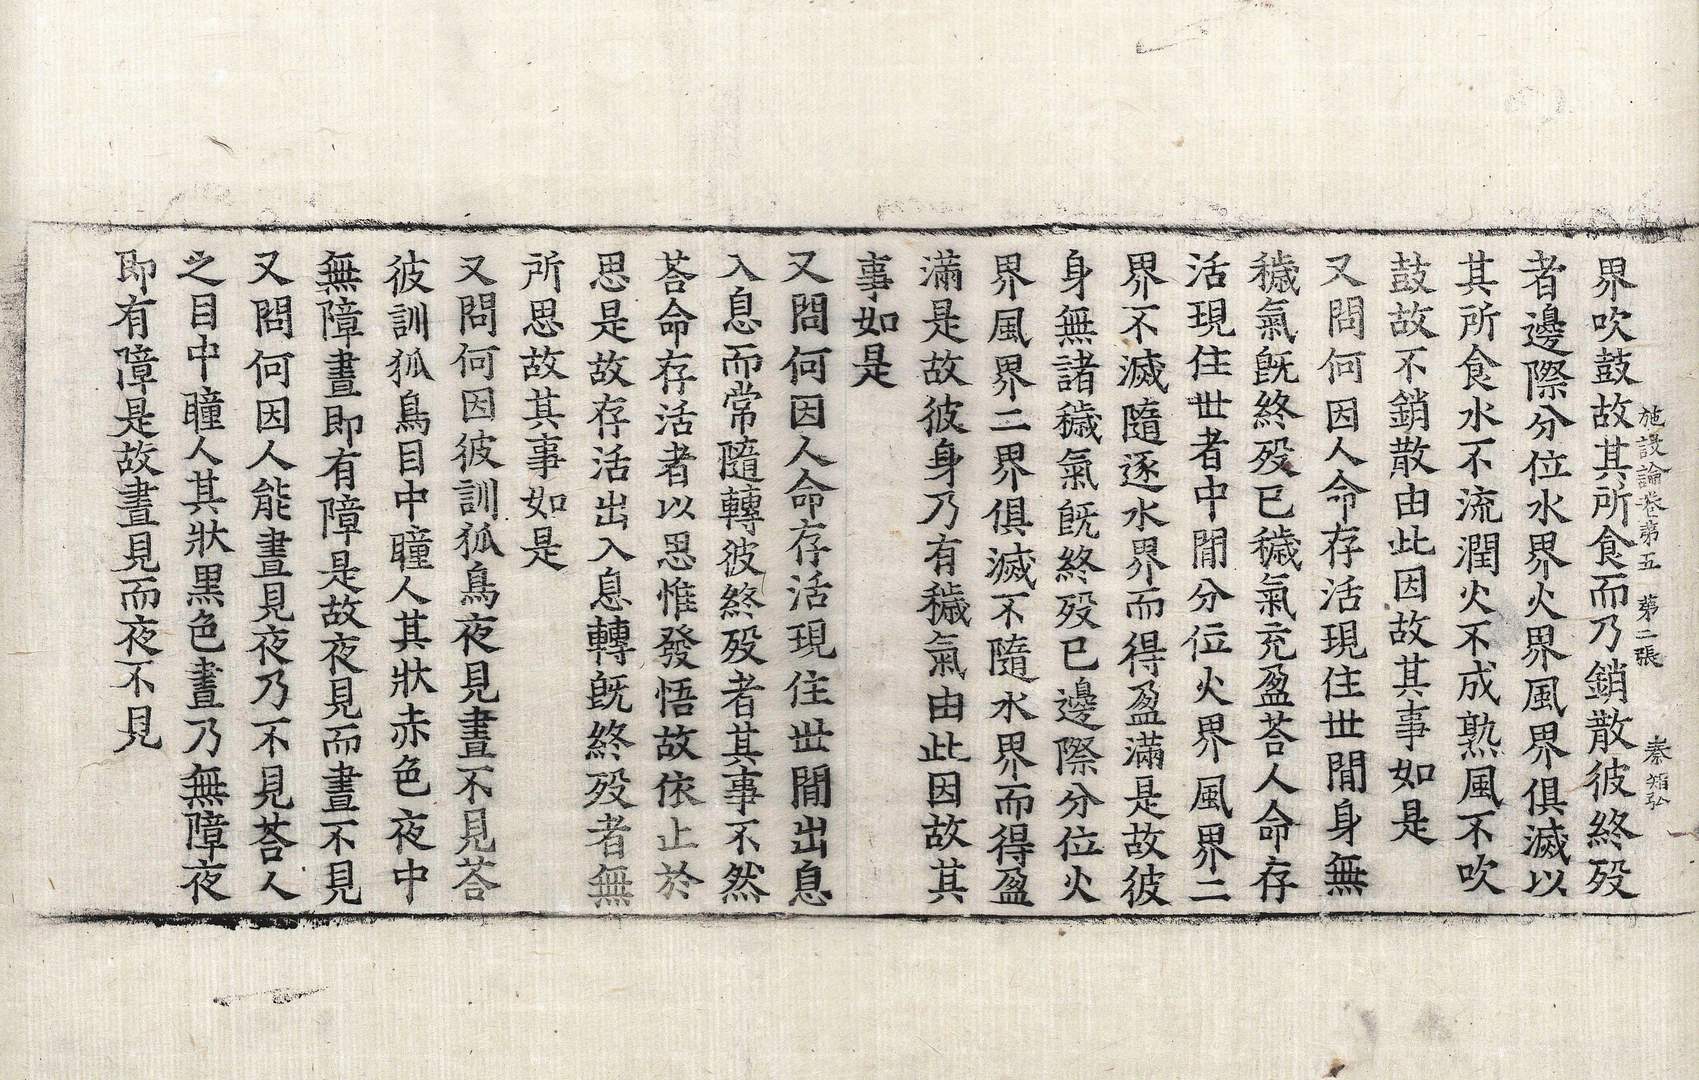 施設論卷第五　第二張　秦
界吹鼓故其所食而乃銷散彼終歿
者邊際分位水界火界風界俱滅以
其所食水不流潤火不成熟風不吹
鼓故不銷散由此因故其事如是
又問何因人命存活現住世間身無
穢氣旣終歿已穢氣充盈荅人命存
活現住世者中間分位火界風界二
界不滅隨逐水界而得盈滿是故彼
身無諸穢氣旣終歿已邊際分位火
界風界二界俱滅不隨水界而得盈
滿是故彼身乃有穢氣由此因故其
事如是
又問何因人命存活現住世間出息
入息而常隨轉彼終歿者其事不然
荅命存活者以思惟發悟故依止於
思是故存活出入息轉旣終歿者無
所思故其事如是
又問何因彼訓狐鳥夜見晝不見荅
彼訓狐鳥目中瞳人其狀赤色夜中
無障晝即有障是故夜見而晝不見
又問何因人能晝見夜乃不見荅人
之目中瞳人其狀黑色晝乃無障夜
即有障是故晝見而夜不見